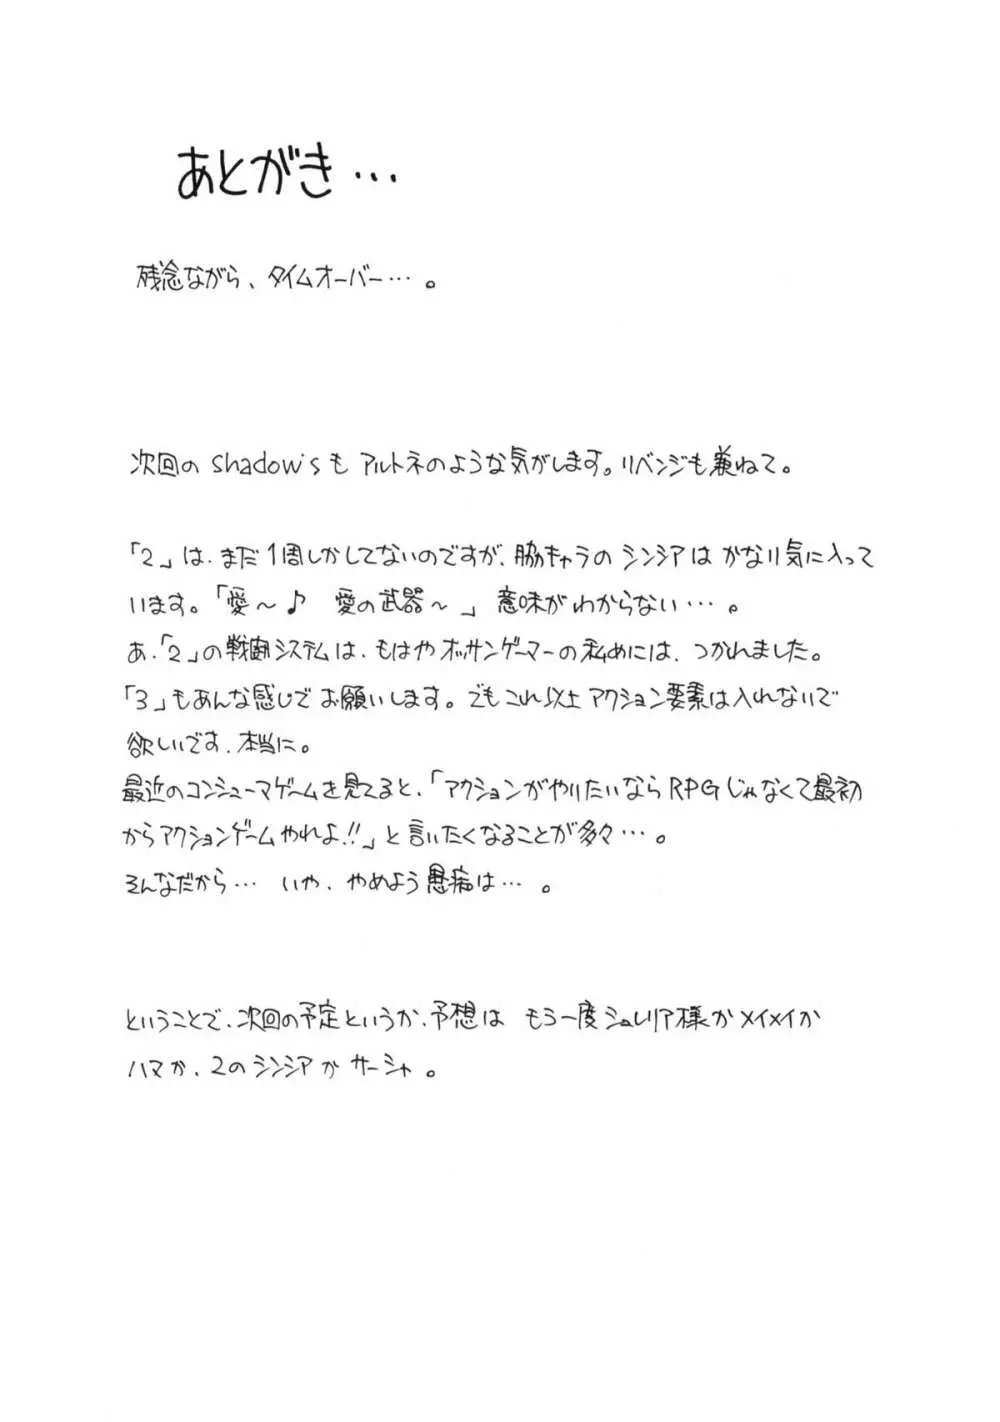 あとがき…
残念ながら、タイムオーバー…。
次回のshadow'sもアルトネのような気がします。リベンジも兼ねて。
「2」は、まだ1周しかしてないのですが、脇キャラのシンシアはかなり気に入って
います。「愛～♪ 愛の武器～」意味がわからない…。
あ、「2」の戦闘システムは、もはやオッサンゲーマーの私めには、つかれました。
「3」もあんな感じでお願いします。でもこれ以上アクション要素は入れないで
欲しいです、本当に。
最近のコンシューマゲームを見てると、「アクションがやりたいならRPGじゃなくて最初
からアクションゲームやれよ!!」と言いたくなることが多々…。
そんなだから… いや、やめよう愚痴は…。
ということで、次回の予定というか、予想は もう一度シュレリア様かメイメイか
ハマか、2のシンシアかサーシャ。